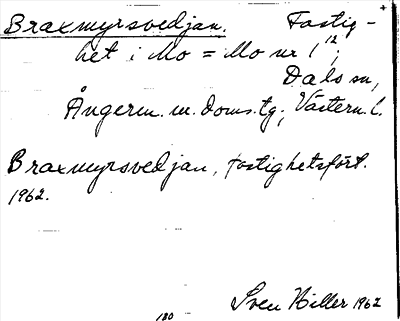 Braxmyrsvedjan. Fastig-
het i Mo = Mo nr 1¹²;
Dals sn,
Ångerm. m. doms.tg., Västern. l.
Braxmyrsvedjan, fastighetsfört.
1962.
Sven Hiller 1962
180